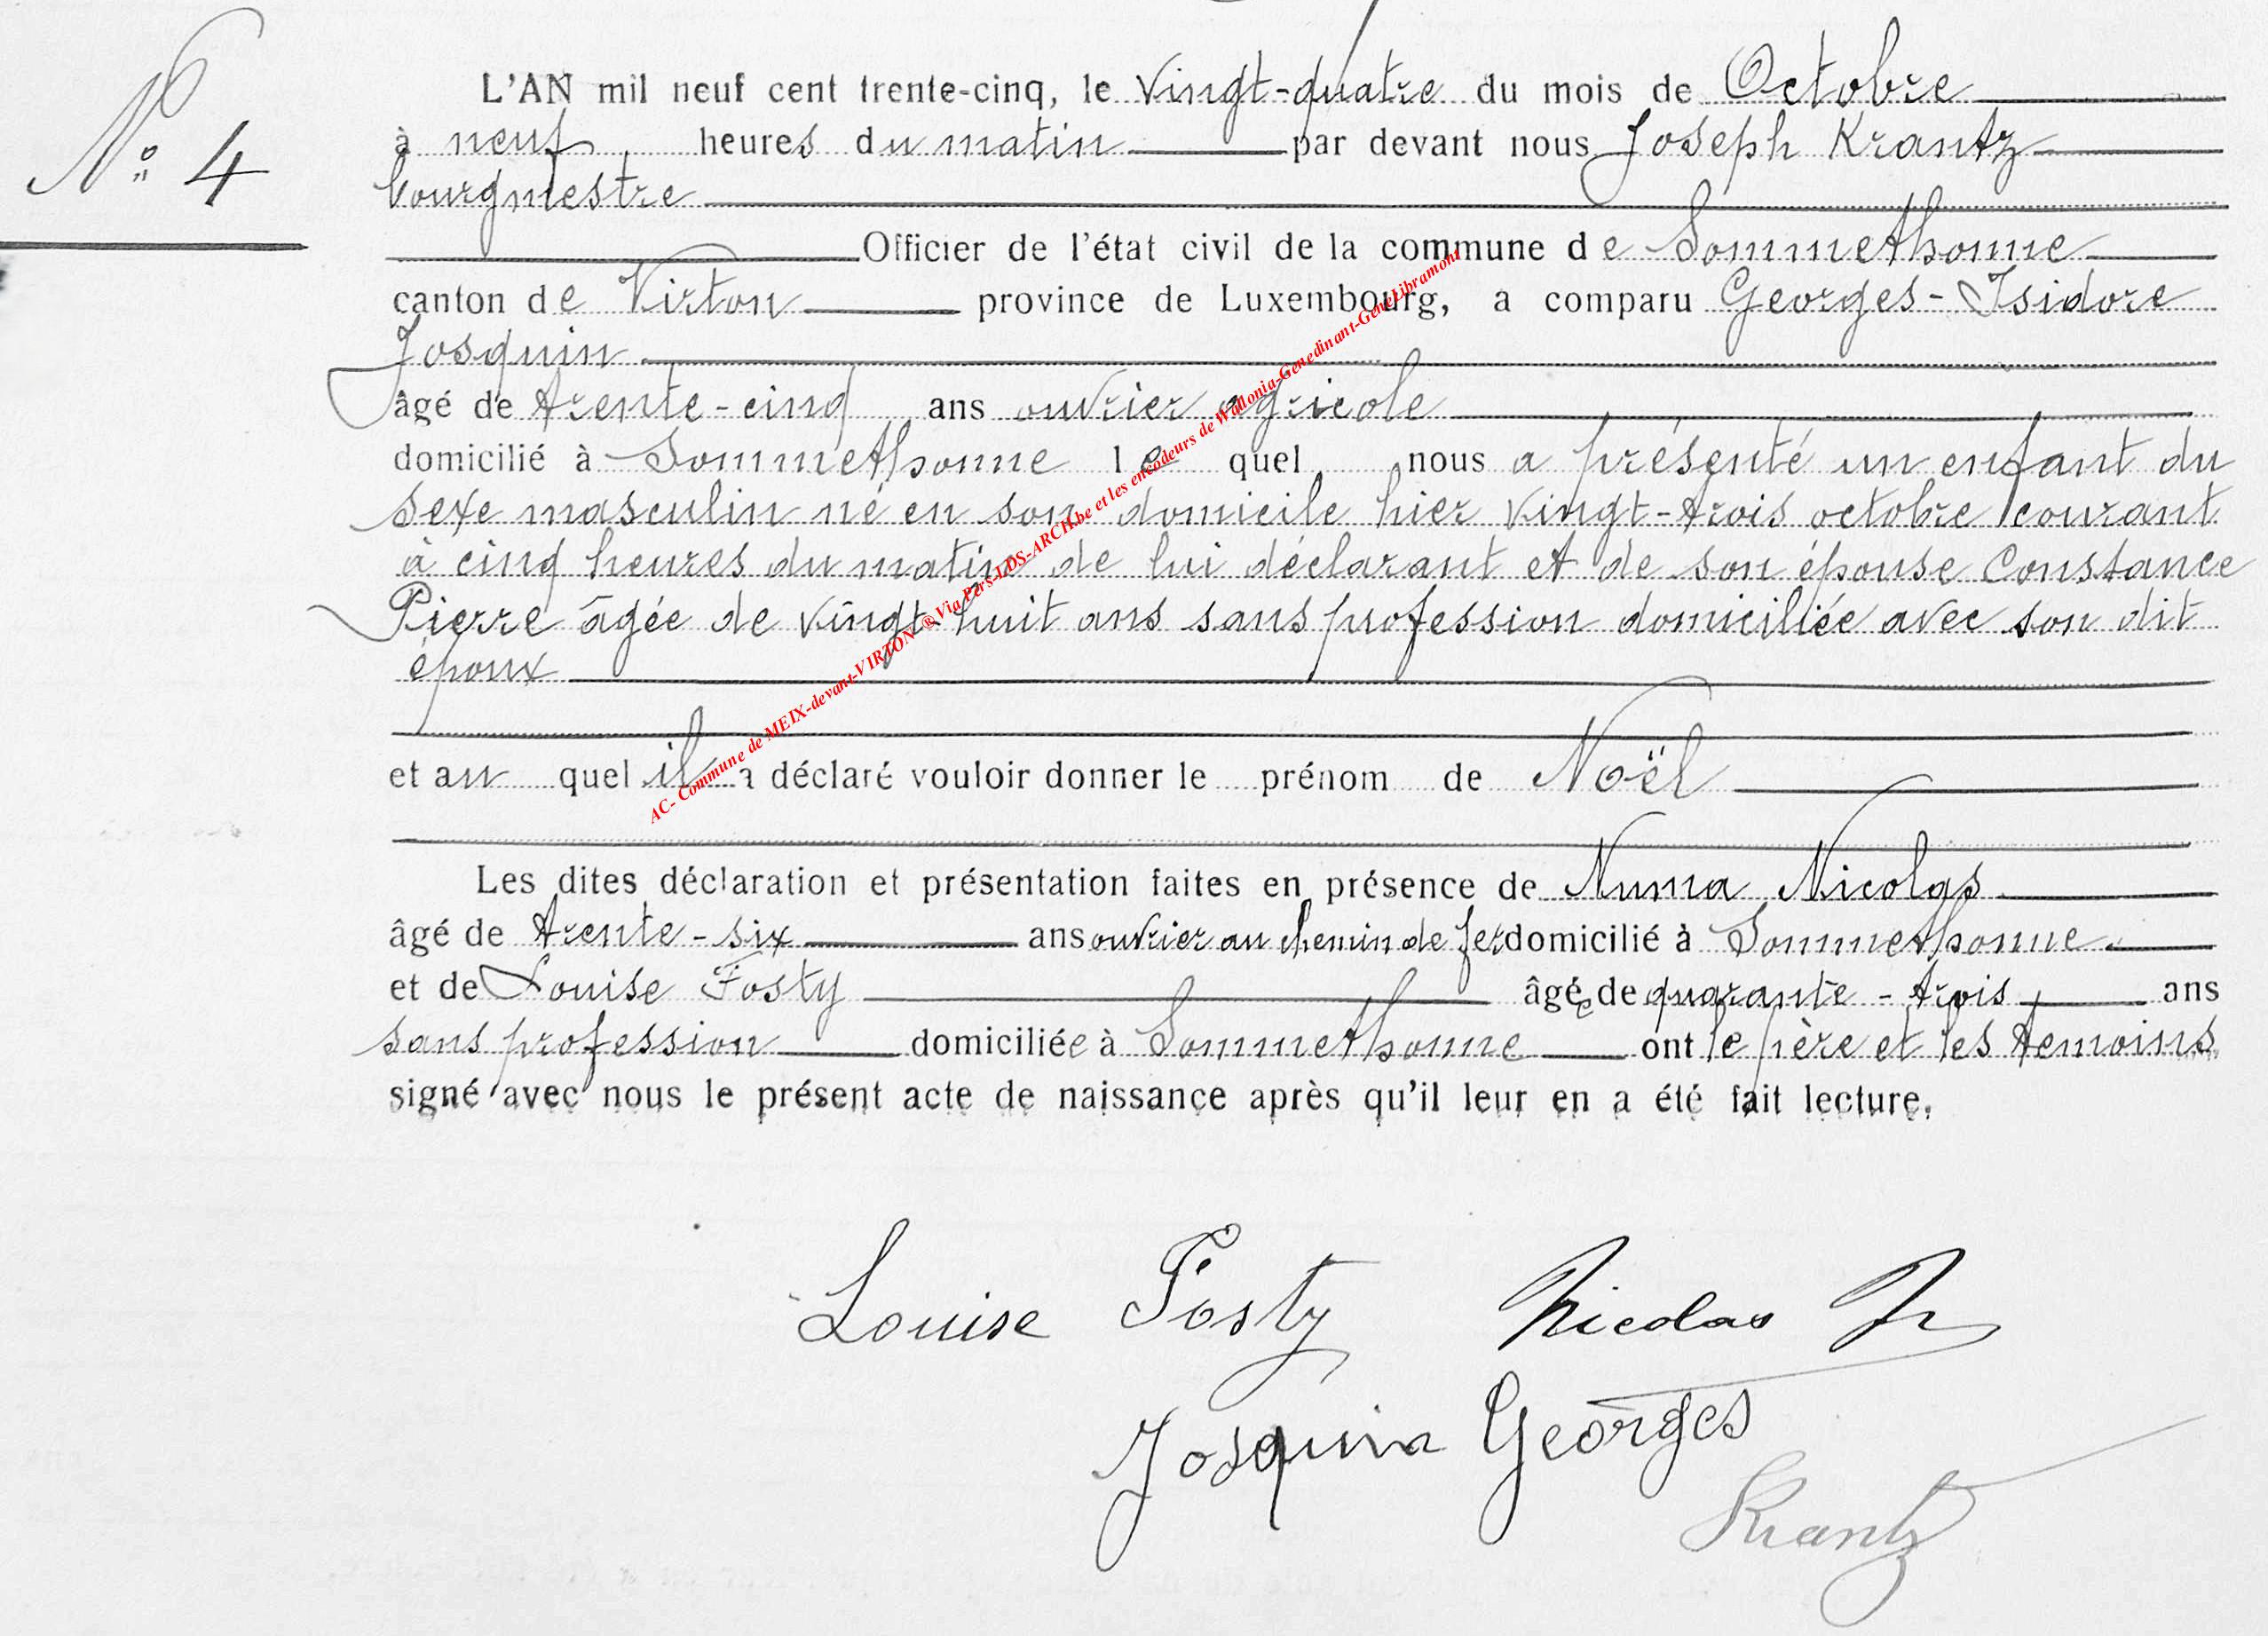 N° 4
L'AN mil neuf cent trente-cinq, le vingt-quatre du mois de Octobre
à neuf heures du matin par devant nous Joseph Krantz
bourgmestre
Officier de l'état civil de la commune de Sommethonne
canton de Virton province de Luxembourg, a comparu Georges-Isidore
Josquin
âgé de trente-cinq ans ouvrier agricole
domicilié à Sommethonne le quel nous a présenté un enfant du
sexe masculin né en son domicile hier vingt-trois octobre courant
à cinq heures du matin de lui déclarant et de son épouse Constance
Pierre âgée de vingt-huit ans sans profession domiciliée avec son dit
époux
et au quel il a déclaré vouloir donner le prénom de Noël
Les dites déclaration et présentation faites en présence de Numa Nicolas
âgé de trente-six ans ouvrier au chemin de fer domicilié à Sommethonne
et de Louise Fosty âgée de quarante-trois ans
sans profession domiciliée à Sommethonne ont le père et les temoins
signé avec nous le présent acte de naissance après qu'il leur en a été fait lecture.
Louise Fosty Nicolas N
Josquin Georges
Krantz
AC- Commune de MEIX-devant-VIRTON ® Via Pers-LDS-ARCH.be et les encodeurs de Wallonia-Genedinant-GeneLibramont